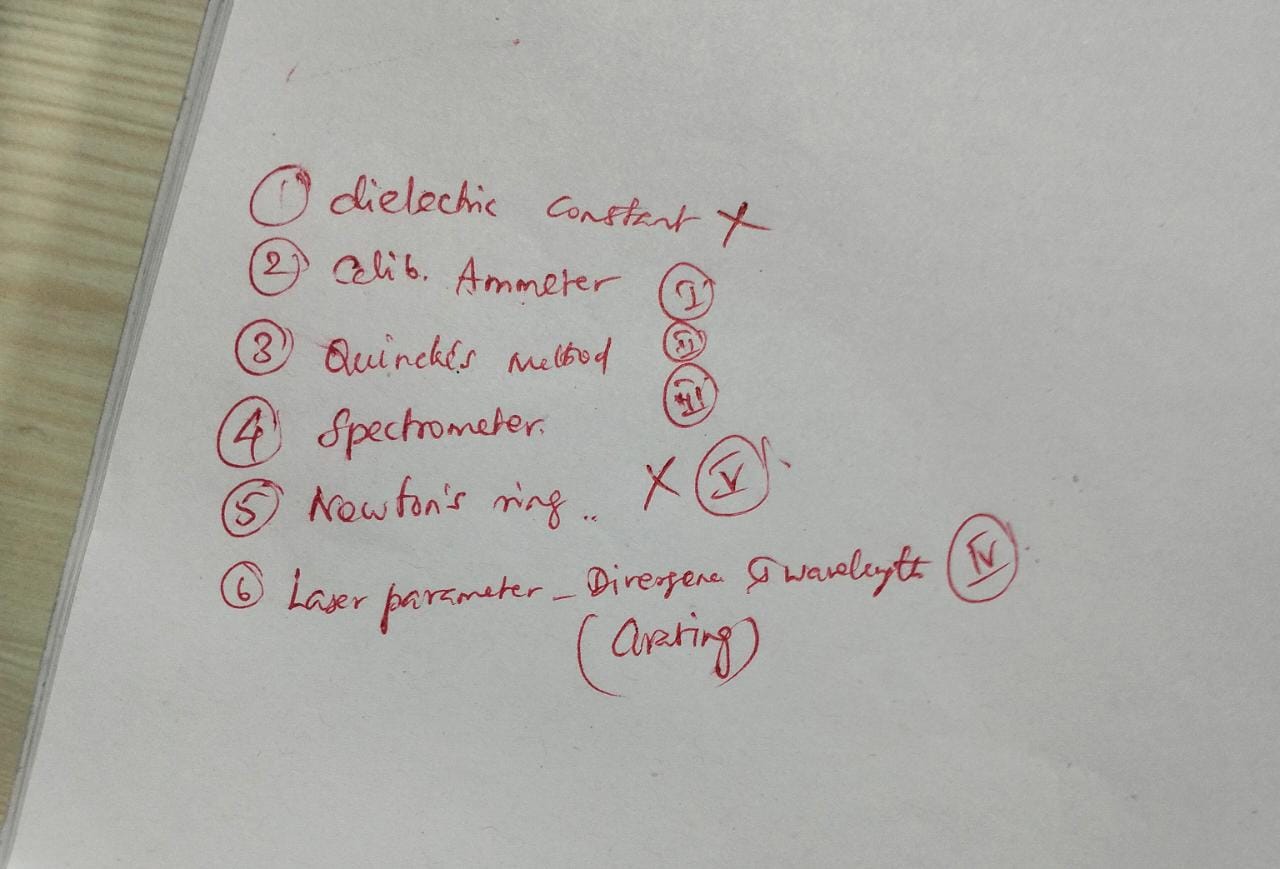 ① dielectric constant X
② Calib. Ammeter Ⓘ
③ Quincke's method Ⓘⓘ
④ Spectrometer. ⒾⒾⒾ
⑤ Newton's ring.. X Ⓥ
⑥ Laser parameter - Divergene & wavelength ⒾⓋ
(Grating)